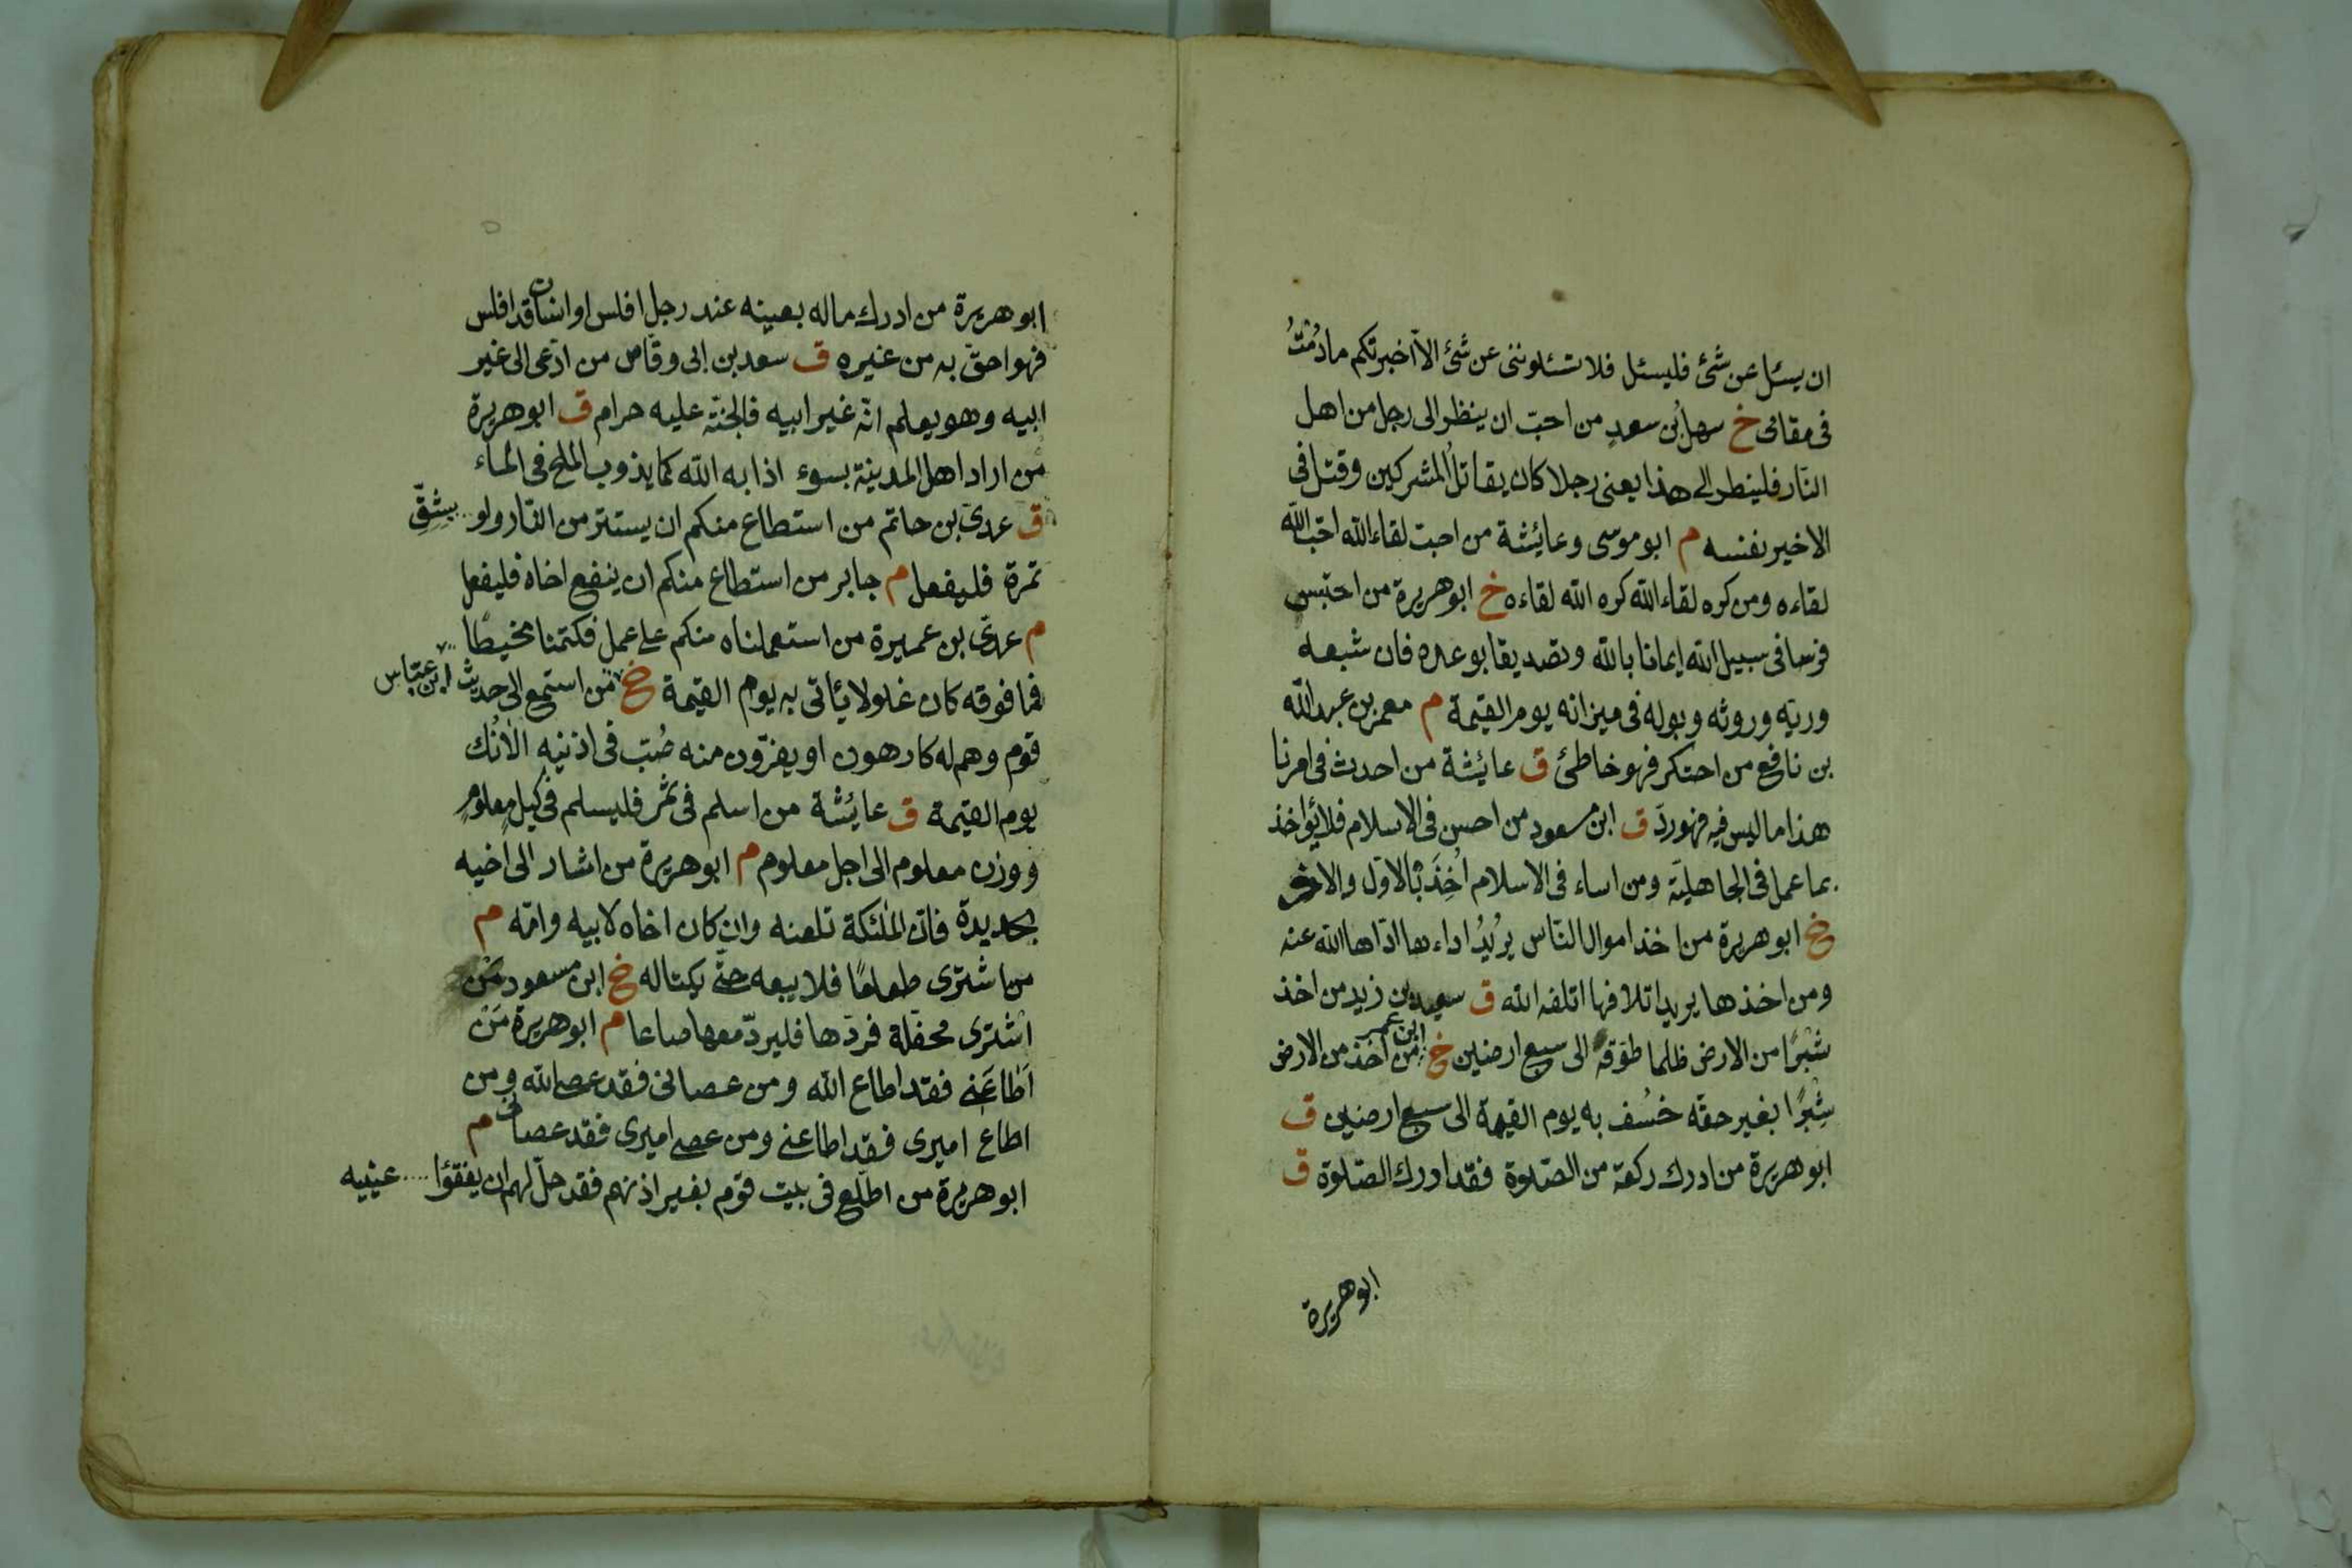 ان يسئل عن شئ فليسئل فلا تسئلوننى عن شئ الا اخبرتكم ما دُمْتُ
فى مقامى خ سهل بن سعدٍ من احبّ ان ينظر الى رجل من اهل
النّار فلينظر الى هذا يعنى رجلا كان يقاتل المشركين وقتل فى
الاخير نفسه م ابو موسى وعايئشة من احبّ لقاء الله احبّ الله
لقاءه ومن كره لقاء الله كره الله لقاءه خ ابو هريرة من احتبس
فرسا فى سبيل الله ايمانا بالله وتصديقا بوعده فان شبعه
وريّه وروثه وبوله فى ميزانه يوم القيمة م معمر بن عبد الله
بن نافع من احتكر فهو خاطئ ق عايئشة من احدث فى امرنا
هذا ما ليس فيه فهو ردّ ق ابن مسعود من احسن فى الاسلام فلا يؤاخذ
بما عمل فى الجاهليّة ومن اساء فى الاسلام اُخِذَ بالاوّل والاخر
خ ابو هريرة من اخذ اموال النّاس يُريدُ اداءها ادّاها الله عنه
ومن اخذها يريد اتلافها اتلفه الله ق سعيد بن زيد من اخذ
شبْرًا من الارض ظلما طوّقه الى سبع ارضين خ ابن عمر من اخذ من الارض
شِبْرًا بغير حقه خُسف به يوم القيمة الى سبع ارضين ق
ابو هريرة من ادرك ركعة من الصّلوة فقد ادرك الصّلوة ق
ابو هريرة
ابو هريرة من ادرك ماله بعينه عند رجل افلس او انسان قد افلس
فهو احقّ به من غيره ق سعد بن ابى وقّاص من ادّعى الى غير
ابيه وهو يعلم انّه غير ابيه فالجنّة عليه حرام ق ابو هريرة
من اراد اهل المدينة بسوء اذابه الله كما يذوب الملح فى الماء
ق عدىّ بن حاتم من استطاع منكم ان يستتر من النّار ولو بِشِقِّ
تمرة فليفعل م جابر من استطاع منكم ان ينفع اخاه فليفعل
م عدىّ بن عميرة من استعملناه منكم على عمل فكتمنا مخيطًا
فما فوقه كان غلولا يأتى به يوم القيمة خ ابن عبّاس من استمع الى حديث
قوم وهم له كارهون او يفرّون منه صُبّ فى اذنيه الْاٰنُك
يوم القيمة ق عايئشة من اسلم فى تمر فليسلم فى كيل معلوم
ووزن معلوم الى اجل معلوم م ابو هريرة من اشار الى اخيه
بحديدة فانّ الملئكة تلعنه وان كان اخاه لابيه وامّه م
من اشترى طعامًا فلا يبعه حتّى يكتاله خ ابن مسعود من
اشترى محفّلة فردّها فليردّ معها صاعا م ابو هريرة مَنْ
اَطاعَنى فقد اطاع الله ومن عصانى فقد عصى الله ومن
اطاع اميرى فقد اطاعنى ومن عصى اميرى فقد عصانى م
ابو هريرة من اطّلع فى بيت قوم بغير اذنهم فقد حلّ لهم ان يفقؤا عينيه